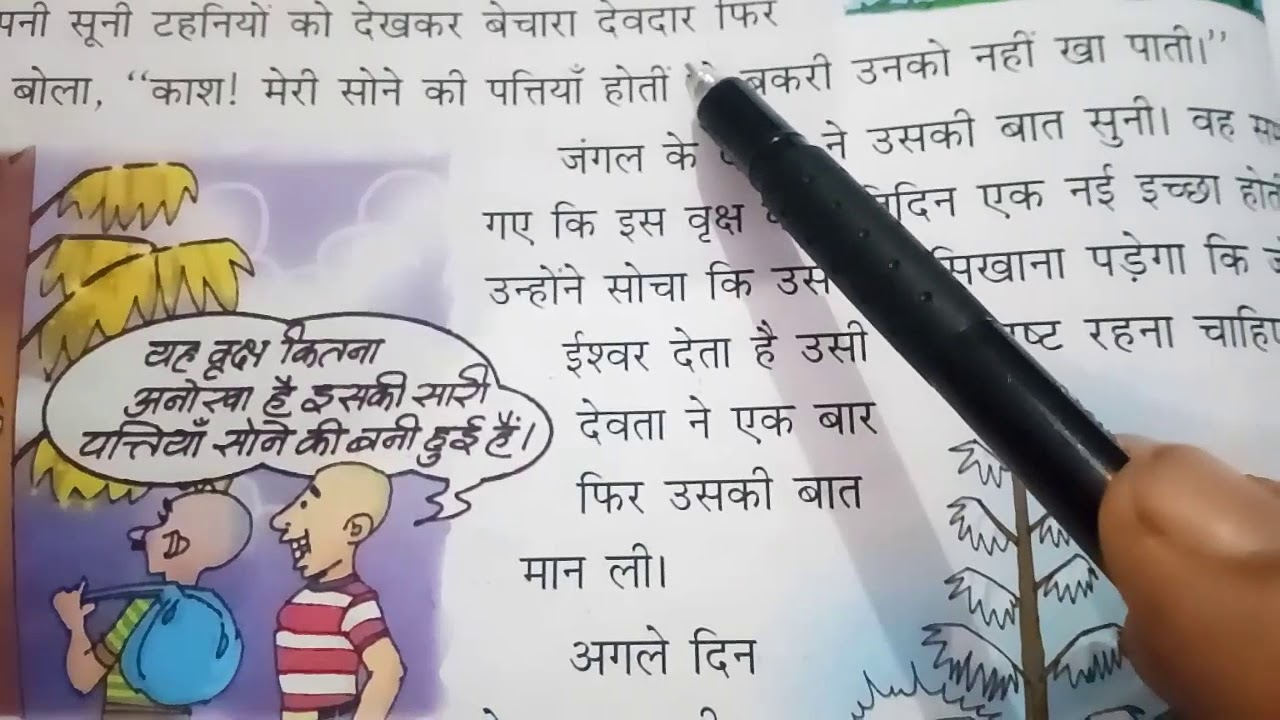 पनी सूनी टहनियों को देखकर बेचारा देवदार फिर
बोला, “काश! मेरी सोने की पत्तियाँ होतीं बकरी उनको नहीं खा पाती।”
जंगल के ने उसकी बात सुनी। वह
गए कि इस वृक्ष एक नई इच्छा
उन्होंने सोचा कि उस सिखाना पड़ेगा कि
ईश्वर देता है उसी रहना चाहिए
देवता ने एक बार
फिर उसकी बात
मान ली।
अगले दिन
यह वृक्ष कितना
अनोखा है इसकी सारी
पत्तियाँ सोने की बनी हुई हैं।